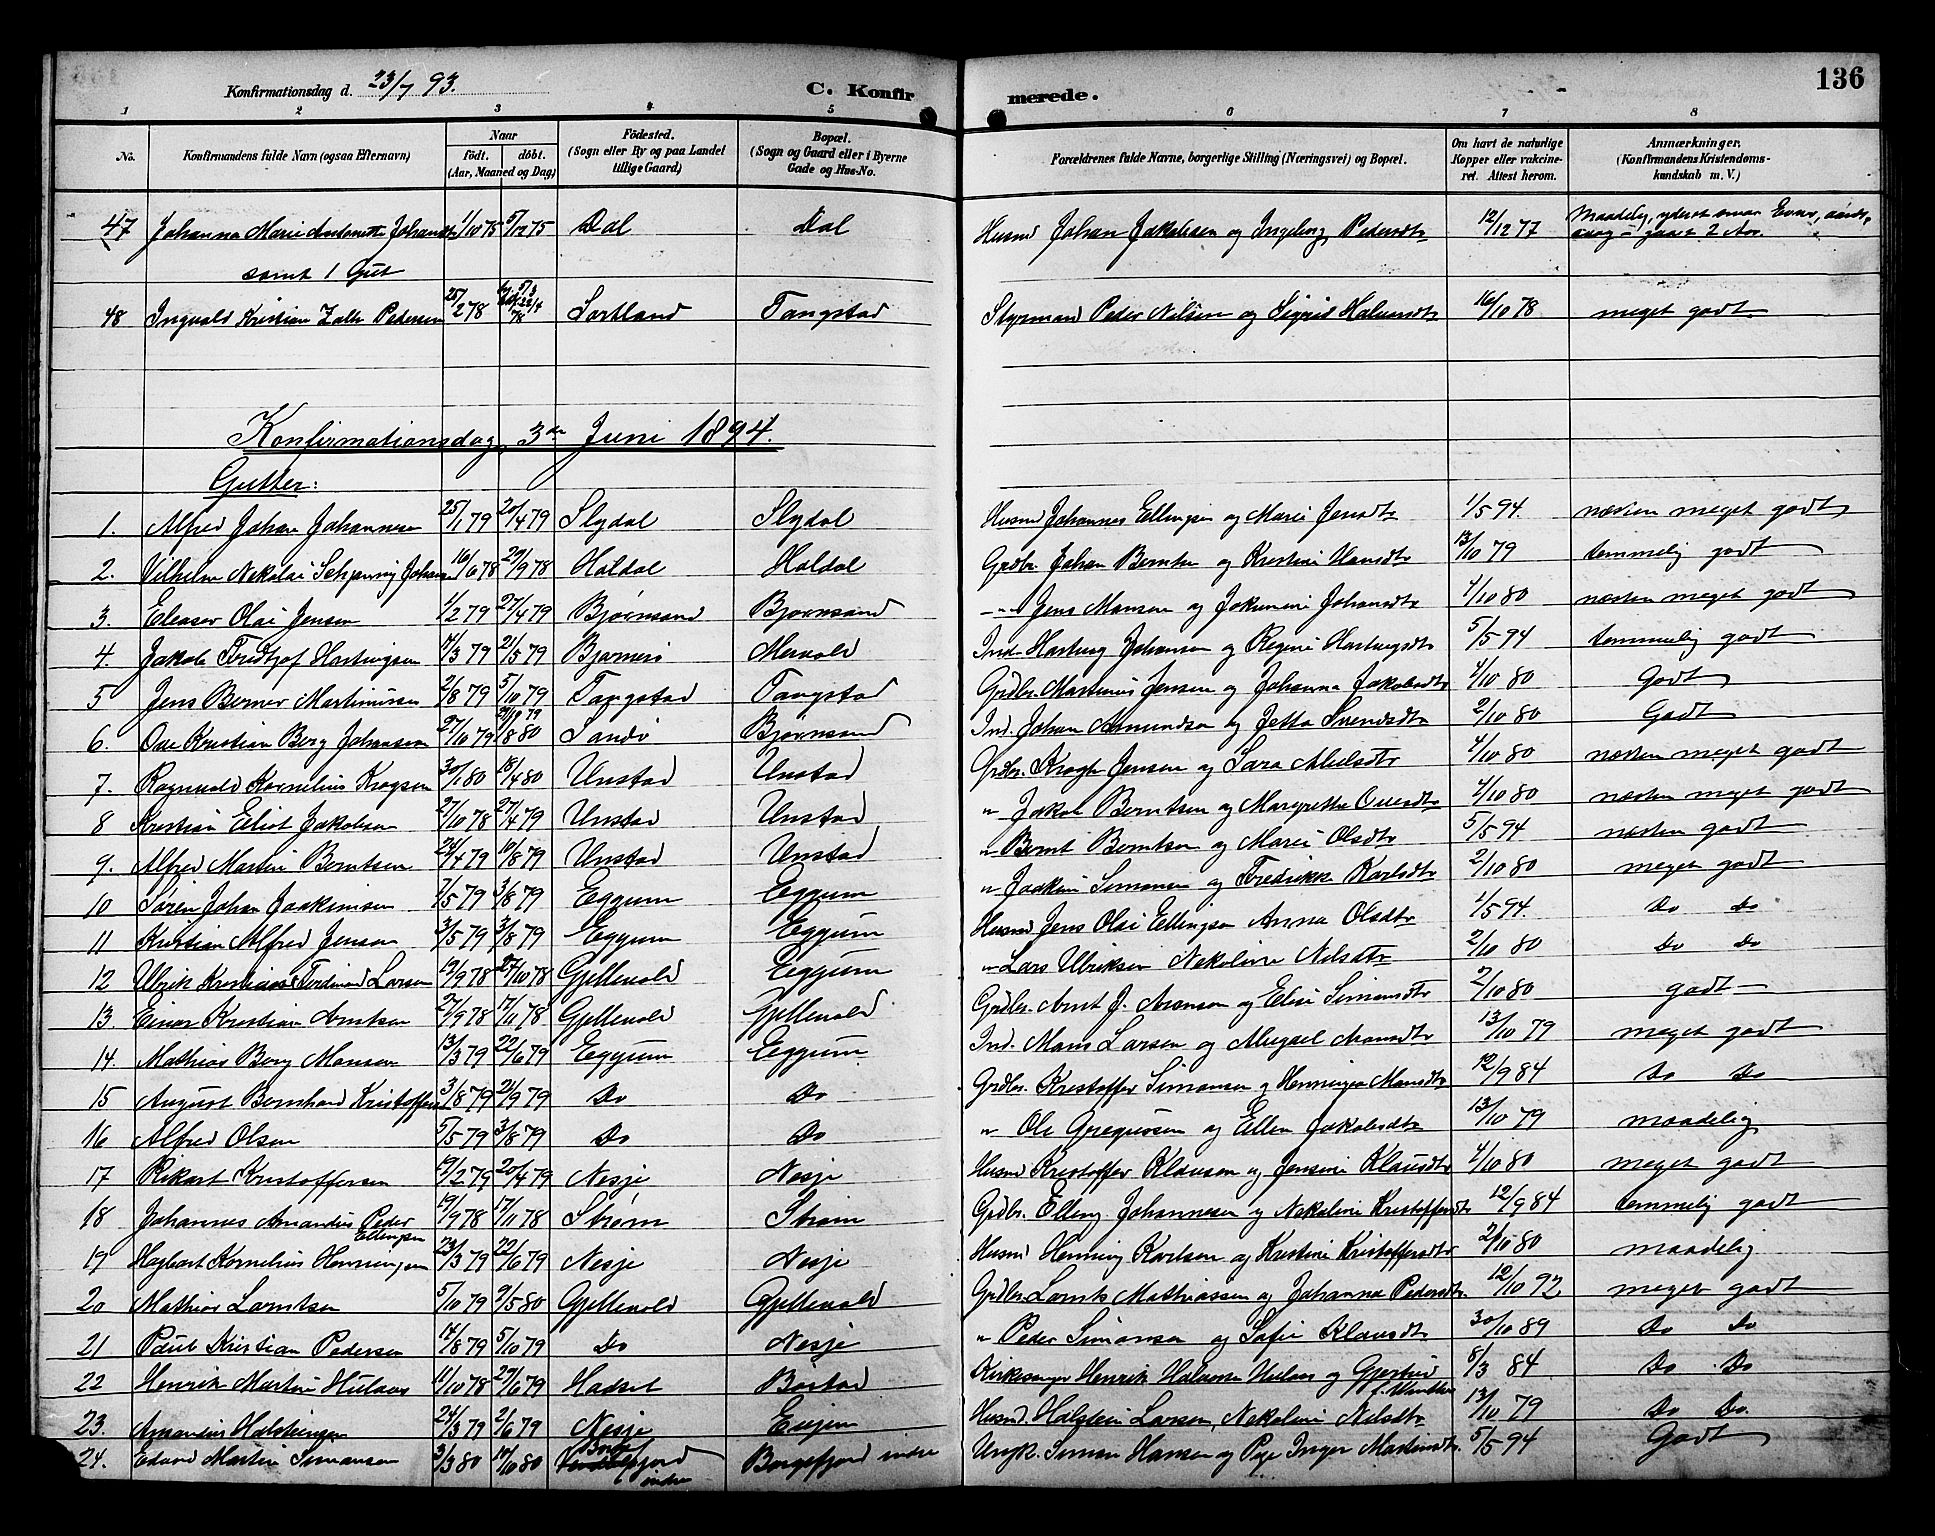 Konfirmationsdag d. 23/7 93. C. Konfirmerede. 136
1 2 3 4 5 6 7 8
No. Konfirmandens fulde Navn (ogsaa Efternavn) Naar födt. döbt. (Aar, Maaned og Dag) Födested. (Sogn eller By og paa Landet tillige Gaard) Bopæl. (Sogn og Gaard eller i Byerne Gade og Hus-No. Forældrenes fulde Navne, borgerlige Stilling (Næringsvei) og Bopæl. Om havt de naturlige Kopper eller vakcineret. Attest herom. Anmærkninger. (Konfirmandens Kristendomskundskab m. V.)
47 Johanna Marie Antonette Johansdtr 1/10 75 5/12 75 Dal Dal Husmd Johan Jakobsen og Ingeborg Pedersdtr 12/12 77 Maadelig, yderst smaa Evner, gaaet 2 Aar.
samt 1 Gut
48 Ingvald Kristian Pedersen 25/2 78 Sortland Tangstad Styrmand Peder Nilsen og Sigrid Halvorsdtr 16/10 78 meget godt
Konfirmationsdag 3die Juni 1894.
Gutter:
1. Alfred Johan Johannesen 25/1 79 20/4 79 Slydal Slydal Husmd Johannes Ellingsen og Marie Jensdtr 1/5 94. næsten meget godt
2. Vilhelm Nekolai Schjønnig Johansen 16/6 78 29/9 78 Haldal Haldal Grdbr. Johan Berntsen og Kristine Hansdtr 13/10 79 temmelig godt
3. Eleaser Olai Jensen 1/2 79 27/4 79 Bjørnsand Bjørnsand -"- Jens Mansen og Jakumine Johansdtr 4/10 80 næsten meget godt
4. Jakob Fridtjof Hartvigsen 14/3 79 21/5 79 Bjarnerö Mervold Ind. Hartvig Johansen og Regine Hartvigsdtr 5/5 94 temmelig godt
5 Jens Berner Martinussen 2/8 79 5/10 79 Tangstad Tangstad Grdbr. Martinus Jensen og Johanna Jakobsdtr 4/10 80 Godt
6. Ove Kristian Berg Johansen 27/10 79 Sandö Bjørnsand Ind. Johan Amundsen og Jetta Svendsdtr 2/10 80 Godt
7. Ragnvald Kornelius Krogsen 30/1 80 18/4 80 Unstad Unstad Grdbr. Krogh Jensen og Sara Abelsdtr 4/10 80 næsten meget godt
8 Kristian Eliot Jakobsen 27/10 78 27/4 79 Unstad Unstad " Jakob Berntsen og Margrethe Ovesdtr 4/10 80 næsten meget godt
9. Alfred Martin Berntsen 24/4 79 10/8 79 Unstad Unstad " Bernt Berntsen og Marie Olsdtr 5/5 94 næsten godt
10 Søren Johan Joakimsen 7/5 79 3/8 79 Eggum Eggum " Joakim Simonsen og Fredrikke Karlsdtr 2/10 80 meget godt
11 Kristian Alfred Jensen 3/5 79 3/8 79 Eggum Eggum Husmd Jens Olai Ellingsen Anna Olsdtr 1/5 94. Do Do
12 Ulrik Kristian Ferdinand Larsen 19/9 78 27/10 78 Gjellevold Eggum " Lars Ulriksen Nekoline Nilsdtr 2/10 80 Do Do
13 Einar Kristian Arntsen 27/9 78 17/11 78 Gjellevold Gjellevold Grdbr. Arnt J. Aronsen og Elisi Simonsdtr 2/10 80 godt
14. Mathias Berg Mansen 13/3 79 22/6 79 Eggum Eggum Ind. Mans Larsen og Abigael Aronsdtr 13/10 79 meget godt
15 August Bernhard Kristoffersen 3/8 79 21/9 79 Do Do Grdbr. Kristoffer Simonsen og Henningea Mansdtr 12/9 84 Do Do
16 Alfred Olsen 5/5 79 3/8 79 Do Do " Ole Gregersen og Ellen Jakobsdtr 13/10 79 maadelig
17 Rikart Kristoffersen 19/2 79 20/4 79 Nesje Nesje Husmd Kristoffer Klausen og Jensine Klausdtr 4/10 80 meget godt
18 Johannes Amandus Peder Ellingsen 19/9 78 17/11 78 Strøm Strøm Grdbr. Elling Johannesen og Nekoline Kristoffersdtr 12/9 84 temmelig godt
19 Hagbart Kornelius Henningsen 23/3 79 22/6 79 Nesje Nesje Husmd Henning Karlsen og Kristine Kristoffersdtr 2/10 80 maadelig
20 Mathias Lorntsen 5/10 79 9/5 80 Gjellevold Gjellevold Grdbr. Lornts Mathiassen og Johanna Pedersdtr. 12/10 92 meget godt
21 Paul Kristian Pedersen 14/8 79 5/10 79 Do Nesje " Peder Simonsen og Sofie Klausdtr 30/10 89 Do Do
22 Henrik Martin Hulaas 11/10 78 29/6 79 Hadsel Bostad Kirkesanger Henrik Halvorsen Hulaas og Gjertrud f. Winther 8/3 84 Do Do
23. Amandus Halsteinsen 24/3 79 2/6 79 Nesje Evjen Husmd. Halstein Larsen, Nekoline Nilsdtr 13/10 79 Do Do.
24. Edvard Martin Simonsen 3/3 80 10/10 80 Borgefjord indre Borgefjord indre Ungk. Simon Hansen og Pige Inger Martinsdtr. 5/5 94 Godt